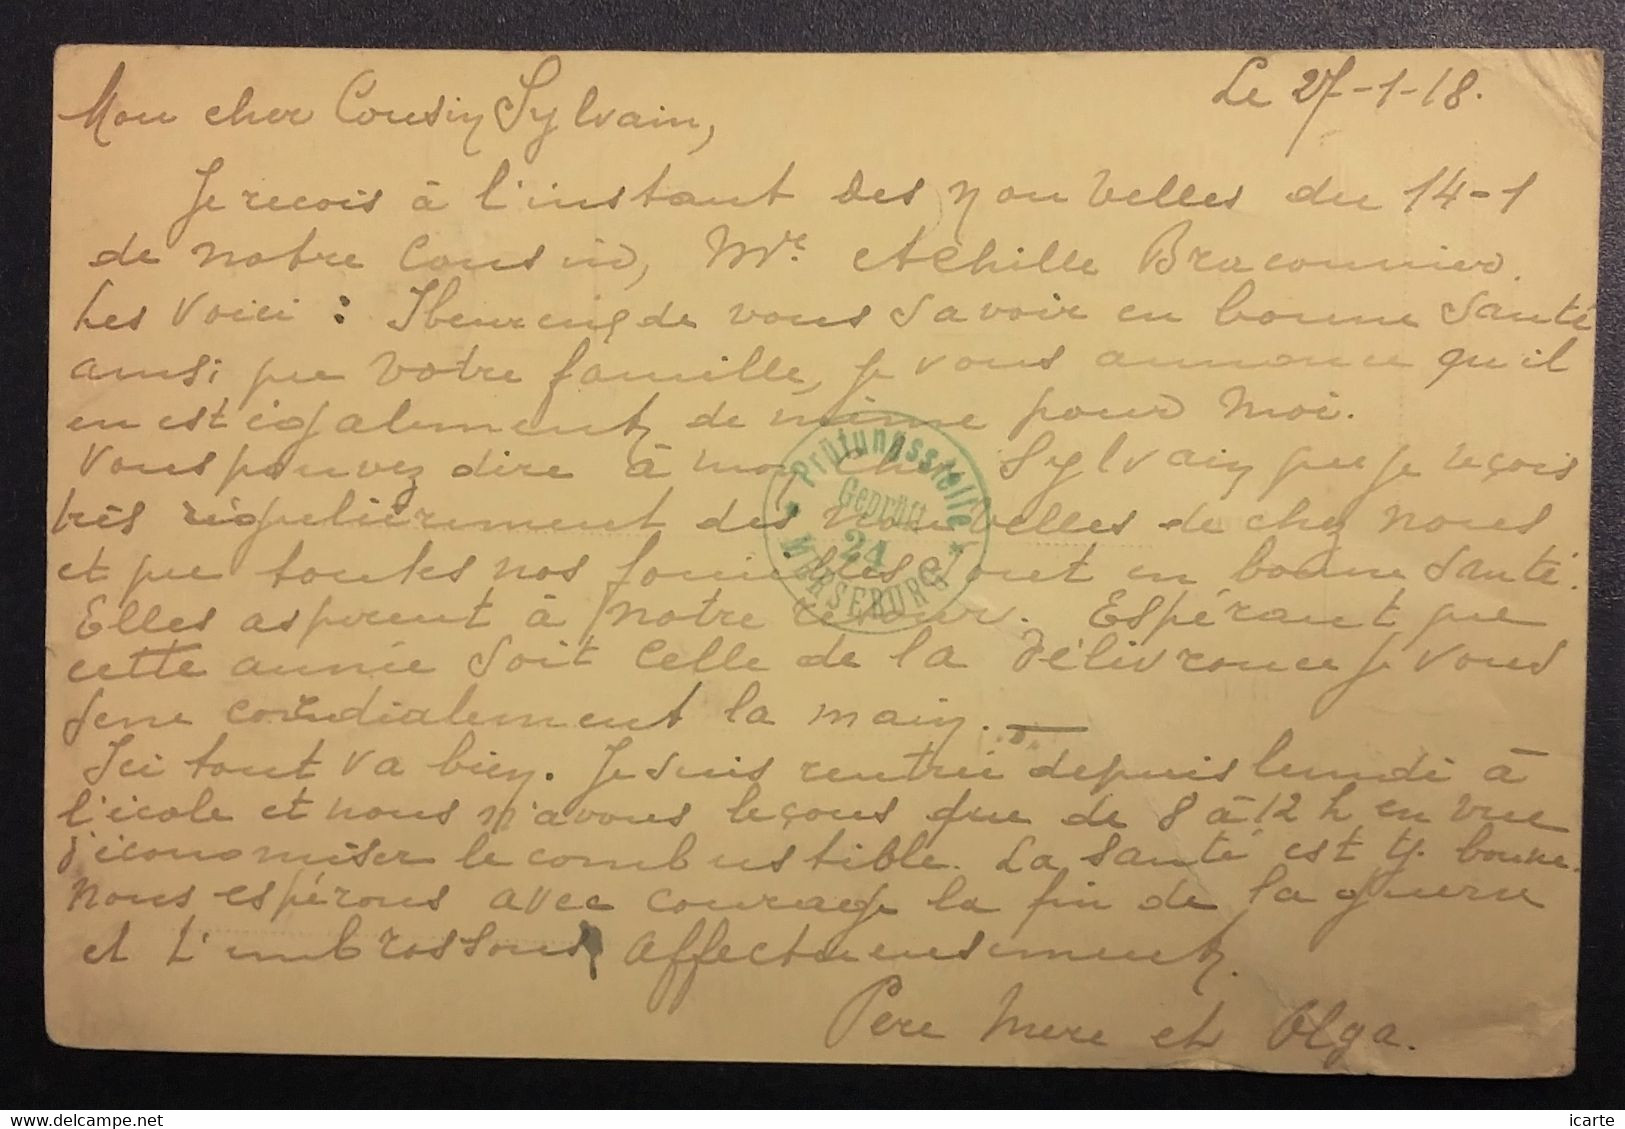 Le 27-1-18.
Mon cher Cousin Sylvain,
Je recois à l'instant des nouvelles du 14-1
de notre Cousin, Mr. Achille Braconnier.
Les voici : Heureux de vous savoir en bonne santé
ainsi que votre famille, je vous annonce qu'il
en est également de même pour moi.
Vous pouvez dire à mon cher Sylvain que je reçois
très régulièrement des nouvelles de chez nous
et que toutes nos familles sont en bonne santé.
Elles aspirent à notre retour. Espérant que
cette année soit celle de la délivrance je vous
serre cordialement la main. —
Ici tout va bien. Je suis rentrée depuis lundi à
l'école et nous n'avons leçons que de 8 à 12 h en vue
d'économiser le combustible. La santé est tj. bonne.
Nous espérons avec courage la fin de la guerre
et t'embrassons affectueusement.
Père Mère et Olga.
Prüfungsstelle
Geprüft
24
* MERSEBURG *
icarte
delcampe.net